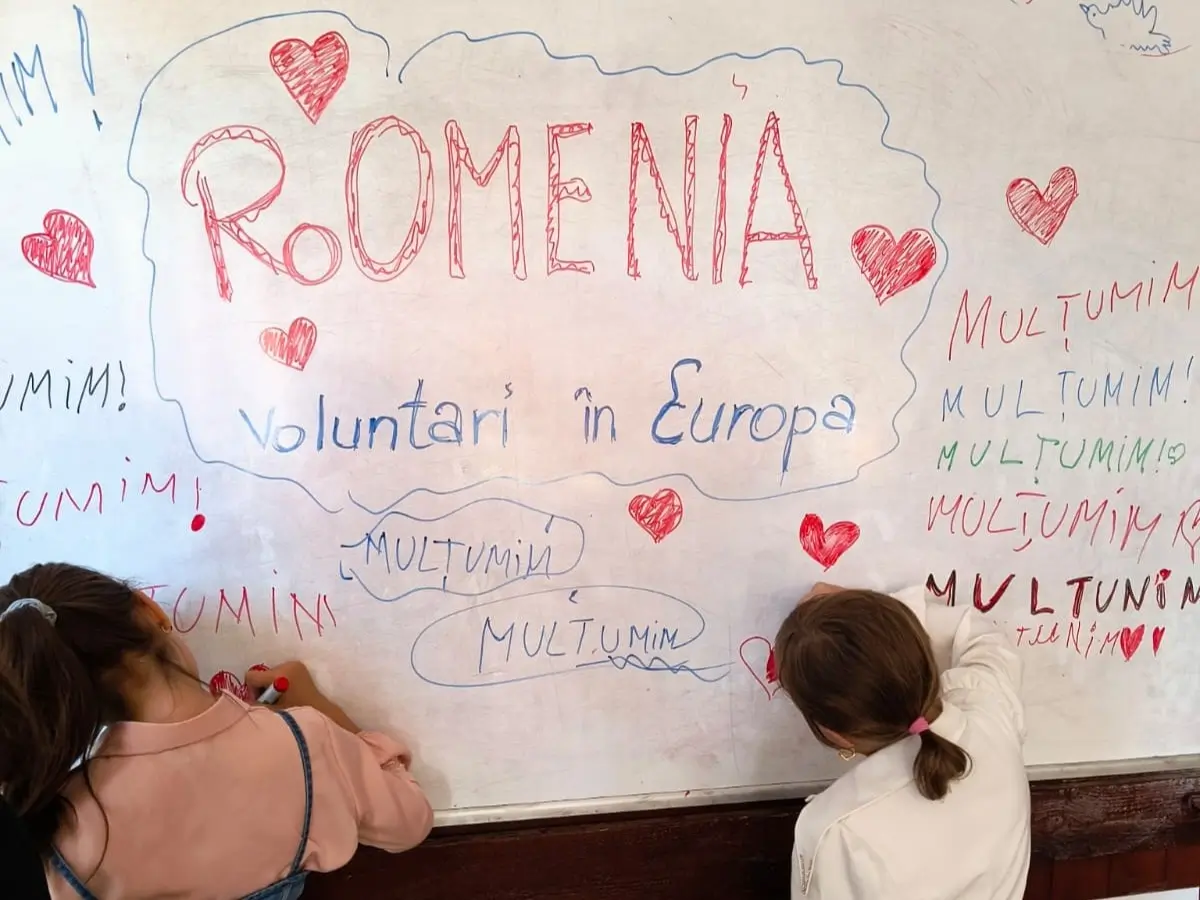 IM!
ROMENIA
Voluntari în Europa
UMIM!
ȚUMIM!
ȚUMIM
MULȚUMIM
MULȚUMIM
MULȚUMIM
MULȚUMIM!
MULȚUMIM!
MULȚUMIM
MULTUNIM
TUNIM